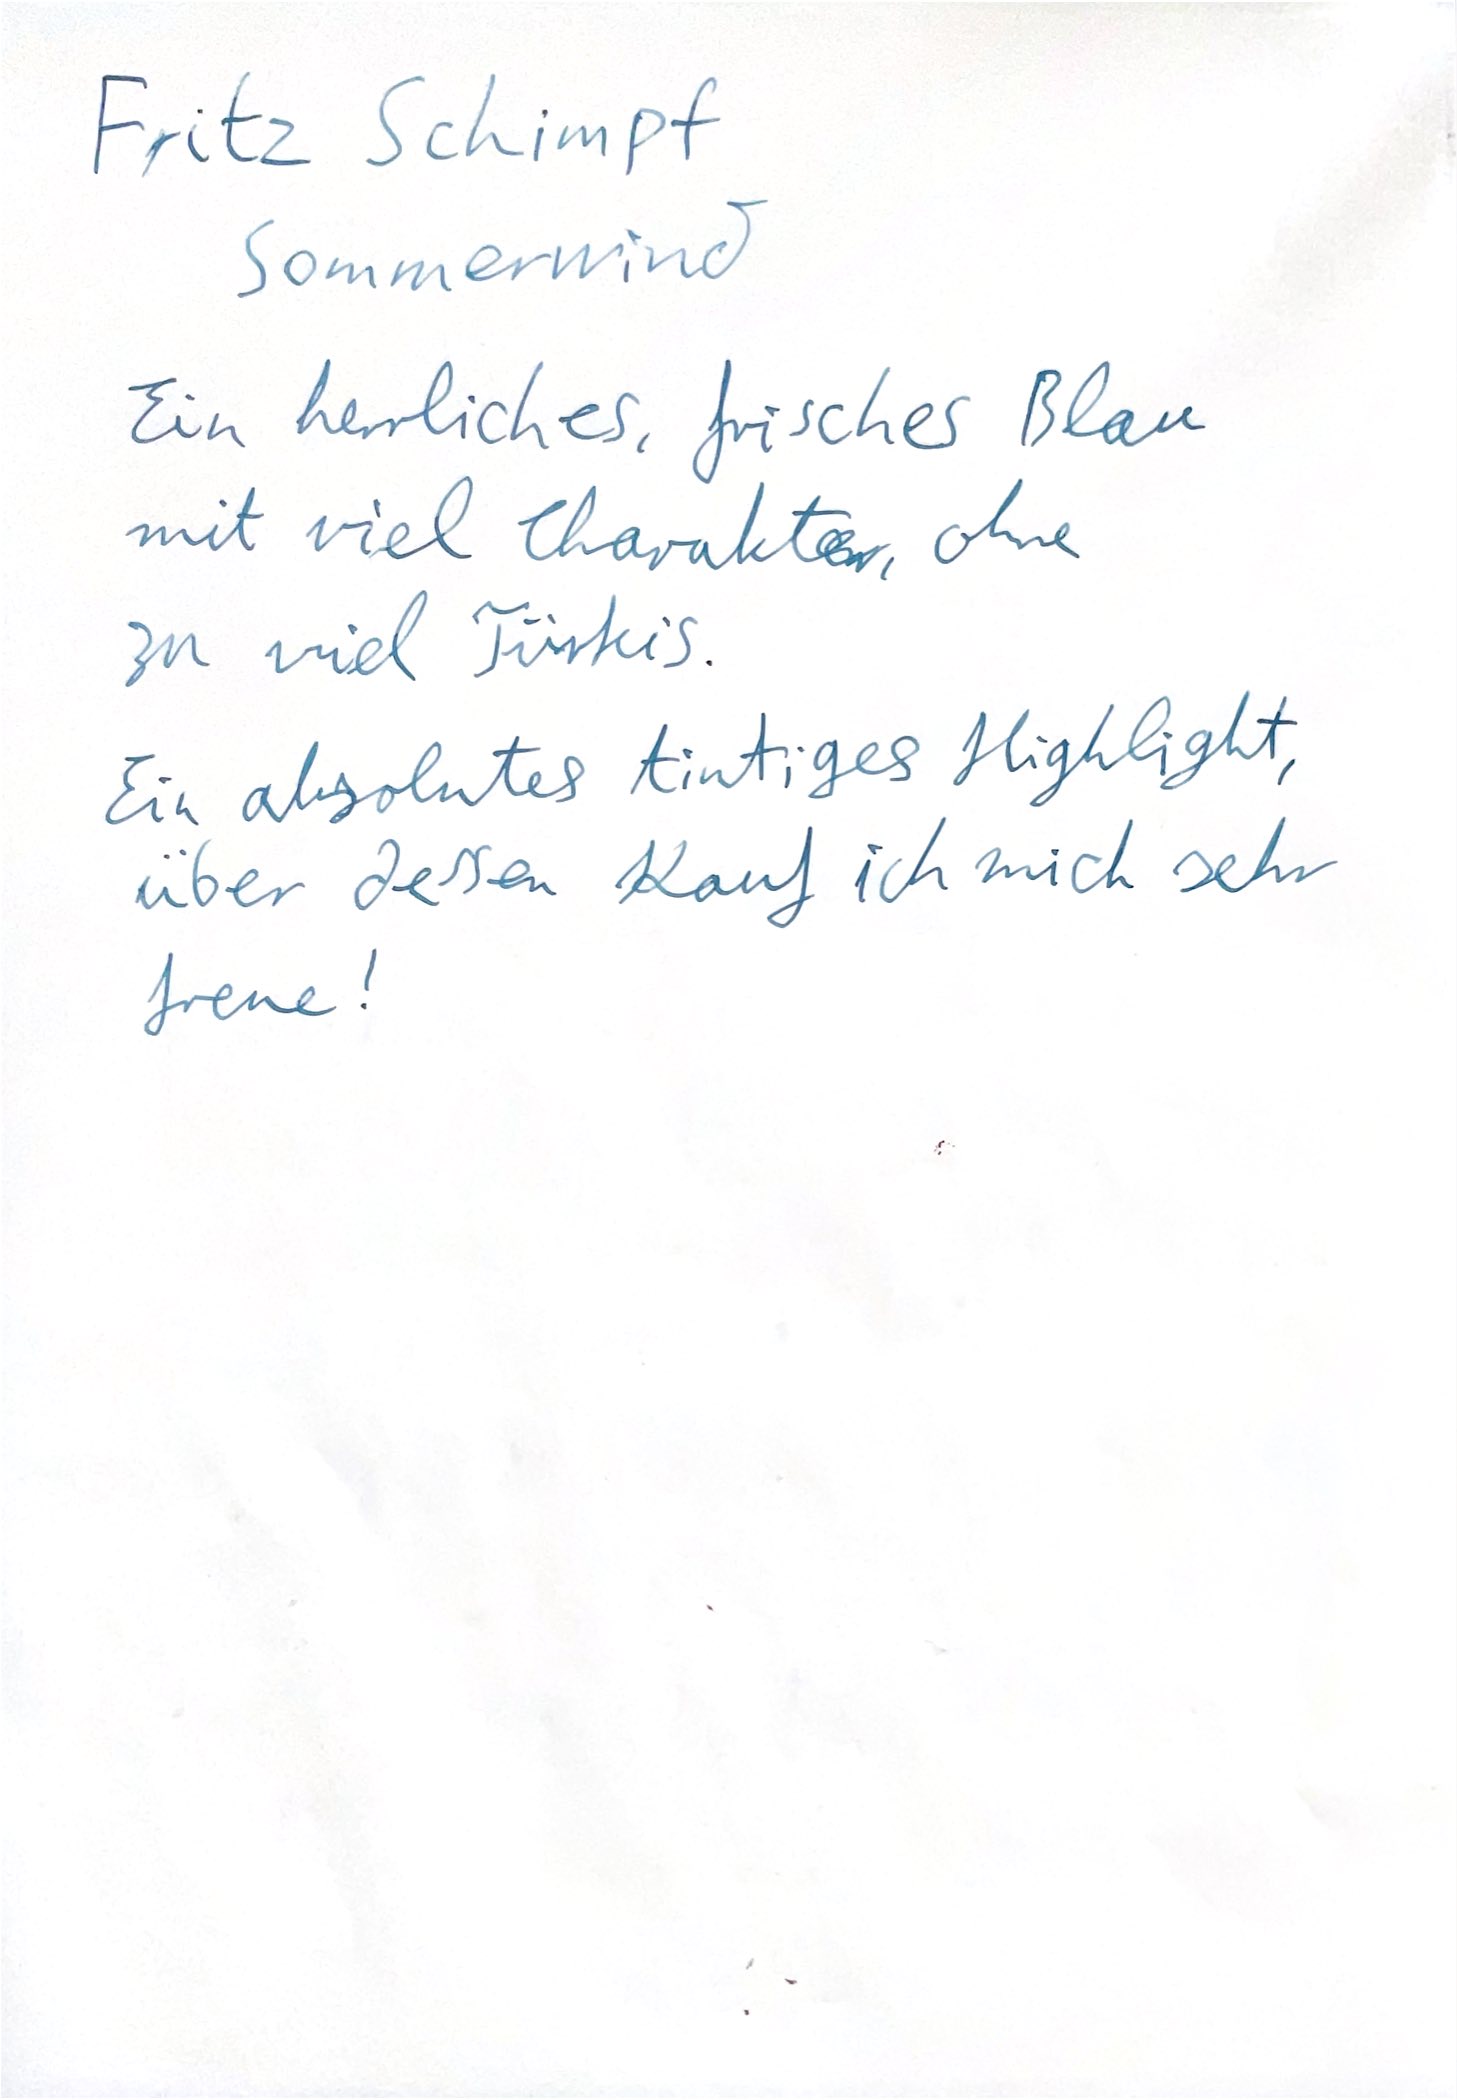 Fritz Schimpf
Sommerwind
Ein herrliches, frisches Blau
mit viel Charakter, ohne
zu viel Türkis.
Ein absolutes tintiges Highlight,
über dessen Kauf ich mich sehr
freue!